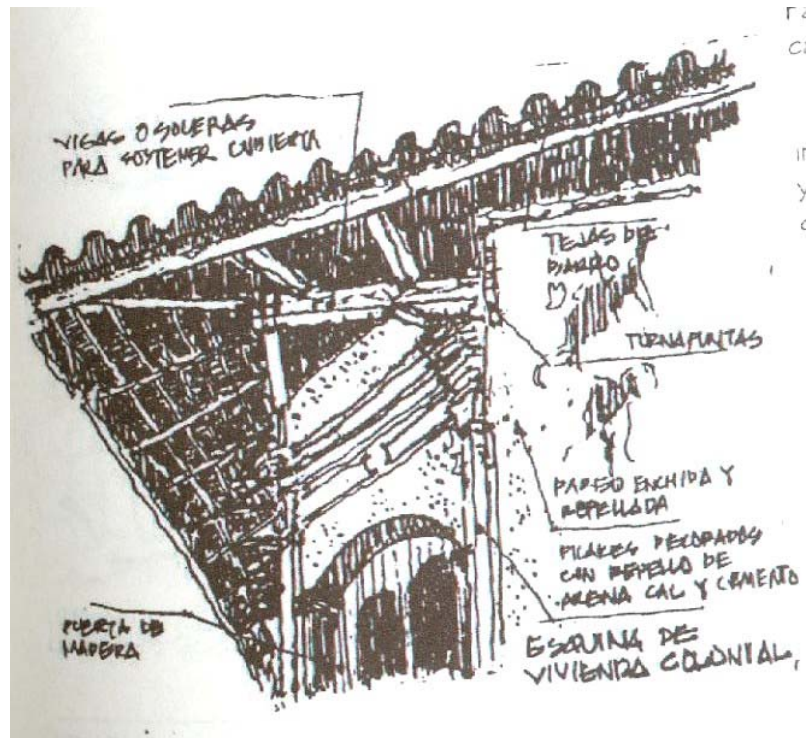 VIGAS O SOLERAS
PARA SOSTENER CUBIERTA
TEJAS DE
BARRO
TORNAPUNTAS
PARED ENCHIDA Y
REPELLADA
PILARES DECORADOS
CON REPELLO DE
ARENA CAL Y CEMENTO
PUERTA DE
MADERA
ESQUINA DE
VIVIENDA COLONIAL,